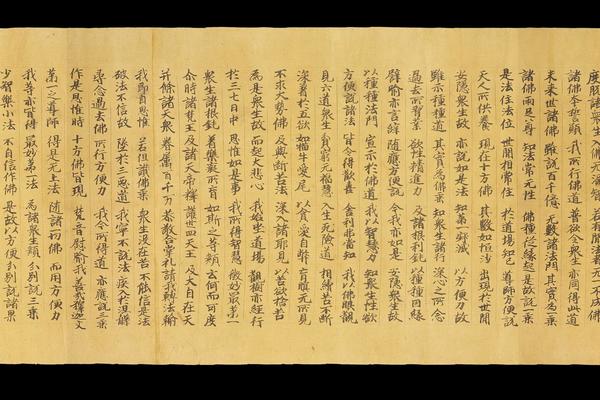 度脫諸衆生 入佛无漏智 若有聞法者 无一不成佛
諸佛本誓願 我所行佛道 普欲令衆生 亦同得此道
未來世諸佛 雖說百千億 无數諸法門 其實為一乘
諸佛兩足尊 知法常无性 佛種從緣起 是故說一乘
是法住法位 世間相常住 於道場知已 導師方便說
天人所供養 現在十方佛 其數如恒沙 出現於世間
安隱衆生故 亦說如是法 知第一寂滅 以方便力故
雖示種種道 其實為佛乘 知衆生諸行 深心之所念
過去所習業 欲性精進力 及諸根利鈍 以種種因緣
譬喻亦言辭 隨應方便說 今我亦如是 安隱衆生故
以種種法門 宣示於佛道 我以智慧力 知衆生性欲
方便說諸法 皆令得歡喜 舍利弗當知 我以佛眼觀
見六道衆生 貧窮无福慧 入生死險道 相續苦不斷
深著於五欲 如犛牛愛尾 以貪愛自蔽 盲瞑无所見
不求大勢佛 及與斷苦法 深入諸邪見 以苦欲捨苦
為是衆生故 而起大悲心 我始坐道場 觀樹亦經行
於三七日中 思惟如是事 我所得智慧 微妙最第一
衆生諸根鈍 著樂癡所盲 如斯之等類 云何而可度
尒時諸梵王 及諸天帝釋 護世四天王 及大自在天
并餘諸天衆 眷屬百千万 恭敬合掌禮 請我轉法輪
我即自思惟 若但讚佛乘 衆生沒在苦 不能信是法
破法不信故 墜於三惡道 我寧不說法 疾入於涅槃
尋念過去佛 所行方便力 我今所得道 亦應說三乘
作是思惟時 十方佛皆現 梵音慰喻我 善哉釋迦文
第一之導師 得是无上法 隨諸一切佛 而用方便力
我等亦皆得 最妙第一法 為諸衆生類 分別說三乘
少智樂小法 不自信作佛 是故以方便 分別說諸果